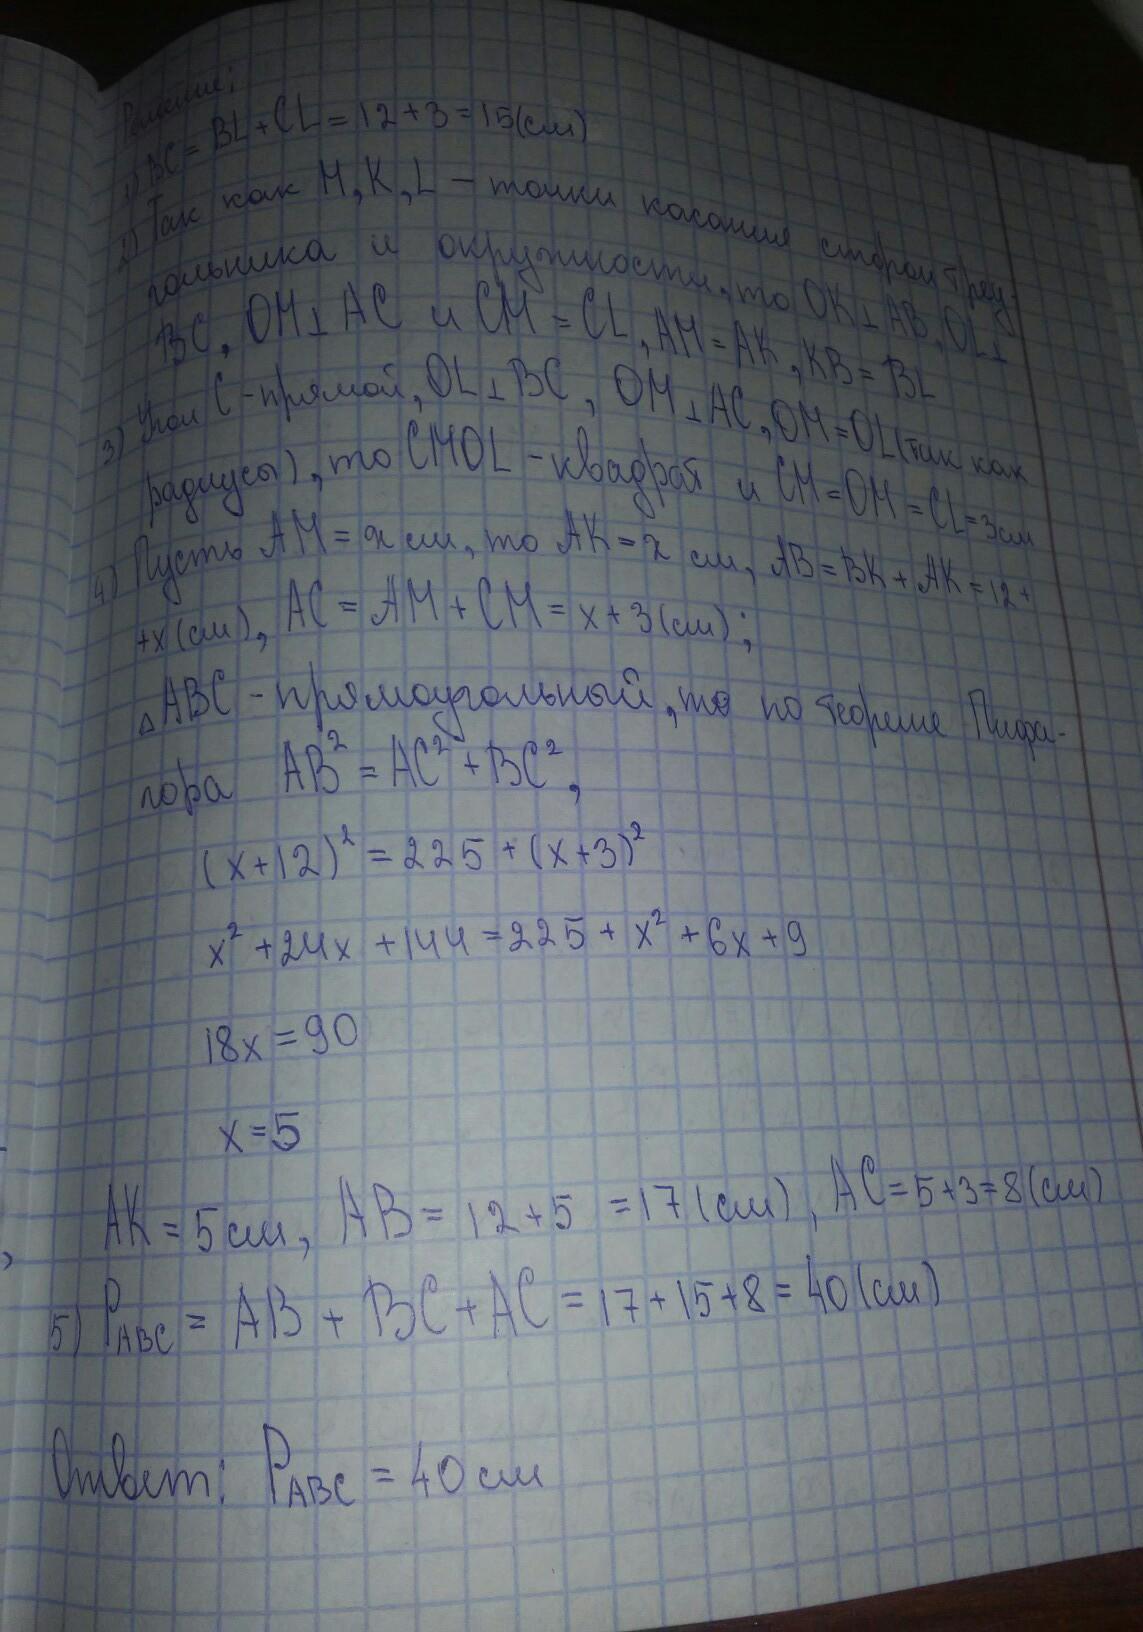 Решение:
1) BC = BL + CL = 12 + 3 = 15(см)
2) Так как M, K, L – точки касания сторон треу-
гольника и окружности, то OK⊥AB, OL⊥
BC, OM⊥AC и CM = CL, AM = AK, KB = BL
3) Угол C - прямой, OL⊥BC, OM⊥AC, OM=OL(так как
радиусы), то CMOL - квадрат и CM=OM=CL=3см
4) Пусть AM = x см, то AK = x см, AB = BK + AK = 12+
+x(см), AC = AM + CM = x + 3(см);
△ABC - прямоугольный, то по теореме Пифа-
гора AB² = AC² + BC²,
(x+12)² = 225 + (x+3)²
x² + 24x + 144 = 225 + x² + 6x + 9
18x = 90
x = 5
AK = 5см, AB = 12 + 5 = 17(см), AC = 5+3=8(см)
5) P_ABC = AB + BC + AC = 17 + 15 + 8 = 40(см)
Ответ: P_ABC = 40см